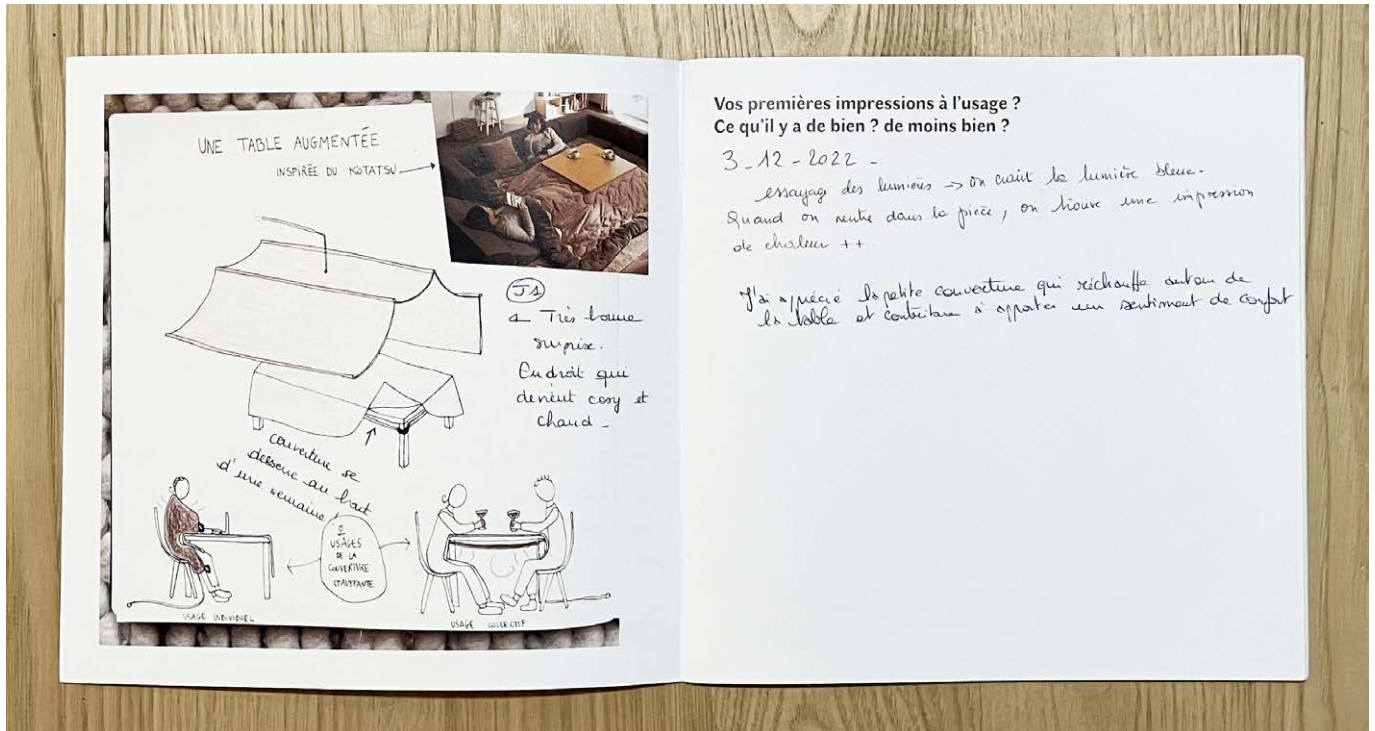 UNE TABLE AUGMENTÉE
INSPIRÉE DU KOTATSU
J1
Très bonne
surprise.
Endroit qui
devient cosy et
chaud -
couverture se
desserre au bout
d'une semaine !
2
USAGES
DE LA
COUVERTURE
CHAUFFANTE
USAGE INDIVIDUEL
USAGE COLLECTIF
Vos premières impressions à l'usage ?
Ce qu'il y a de bien ? de moins bien ?
3-12-2022 -
essayage des lumières → on craint la lumière bleue.
Quand on rentre dans la pièce, on trouve une impression
de chaleur ++
J'ai apprécié la petite couverture qui réchauffe autour de
la table et contribue à apporter un sentiment de confort